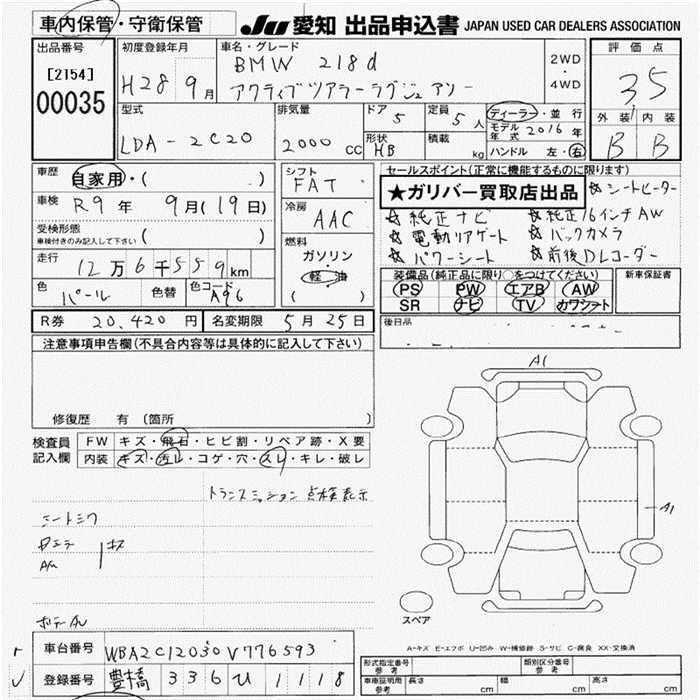 車内保管・守衛保管
JU 愛知 出品申込書 JAPAN USED CAR DEALERS ASSOCIATION
出品番号
[2154]
00035
初度登録年月
H28 9月
車名・グレード
BMW 218d
アクティブツアラーラグジュアリー
2WD
・
4WD
評価点
35
外装 内装
B B
型式
LDA-2C20
排気量
2000 CC
ドア
5
定員
5人
形状
HB
積載
kg
ディーラー・並行
モデル年式 2016年
ハンドル 左・右
車歴
自家用・( )
車検
R9年 9月(19日)
受検形態
車検付きのみ記入して下さい ( )
走行
12万6千559km
色
パール
色替
色コード
A96
シフト
FAT
冷房
AAC
燃料
ガソリン
・
軽油
( )
セールスポイント(正常に機能するものに限ります)
★ガリバー買取店出品
☆シートヒーター
☆純正ナビ ☆純正16インチAW
☆電動リアゲート ☆バックカメラ
☆パワーシート ☆前後DLコーダー
装備品(純正品に限り○をつけてください)
PS PW エアB AW
SR ナビ TV カワシート
新車保証書
後日品
R券 20,420円 名変期限 5月25日
注意事項申告欄(不具合内容等は具体的に記入して下さい)
修復歴 有(箇所 )
検査員記入欄
FW キズ・飛石・ヒビ割・リペア跡・X要
内装 キズ・汚レ・コゲ・穴・スレ・キレ・破レ
トランスミッション点検表示
シートシワ
キズ
A1
A1
スペア
A-キズ E-エクボ U-凹み W-補修跡 S-サビ C-腐食 XX-交換済
車台番号 WBA2C12030V776593
登録番号 豊橋 336 ひ 1118
形式指定番号
参考
類別区分番号
参考
車庫証明用
参考
長さ cm
幅 cm
高さ cm